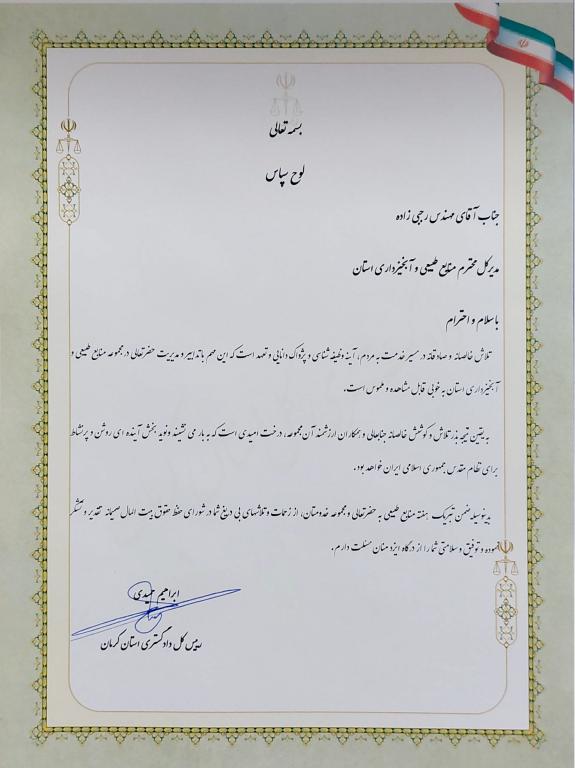 بسمه تعالی
لوح سپاس
جناب آقای مهندس رجبی زاده
مدیرکل محترم منابع طبیعی و آبخیزداری استان
با سلام و احترام
تلاش خالصانه و صادقانه در مسیر خدمت به مردم، آینه وظیفه شناسی و پژواک دانایی و تعهد است که این مهم با تدابیر و مدیریت حضرتعالی در مجموعه منابع طبیعی و
آبخیزداری استان به خوبی قابل مشاهده و ملموس است.
به یقین نتیجه بذر تلاش و کوشش خالصانه جنابعالی و همکاران ارزشمند آن مجموعه، درخت امیدی است که به بار می نشیند و نوید بخش آینده ای روشن و پرنشاط
برای نظام مقدس جمهوری اسلامی ایران خواهد بود.
بدینوسیله ضمن تبریک هفته منابع طبیعی به حضرتعالی و مجموعه خدومتان، از زحمات و تلاشهای بی دریغ شما در شورای حفظ حقوق بیت المال صمیمانه تقدیر و تشکر
نموده و توفیق و سلامتی شما را از درگاه ایزد منان مسئلت دارم.
ابراهیم حمیدی
رییس کل دادگستری استان کرمان